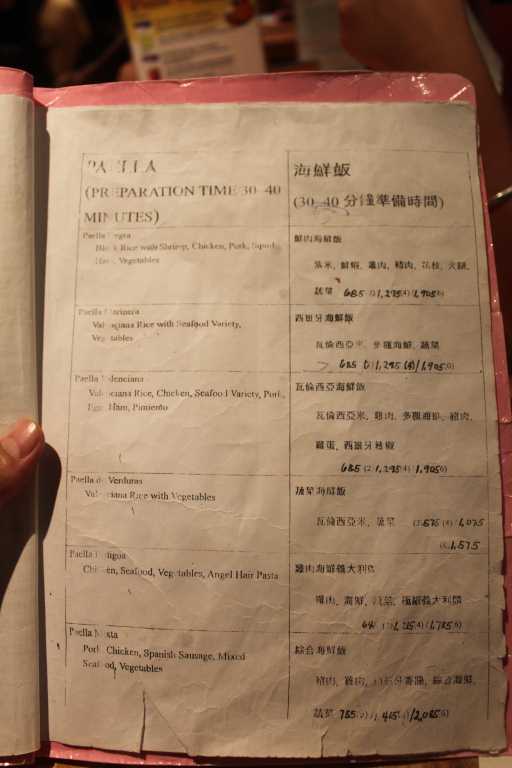 PAELLA
(PREPARATION TIME 30-40
MINUTES)
海鮮飯
(30-40 分鐘準備時間)
Paella Negra
Black Rice with Shrimp, Chicken, Pork, Squid,
Ham, Vegetables
鮮肉海鮮飯
紫米, 鮮蝦, 雞肉, 豬肉, 花枝, 火腿,
蔬菜 685 (2) 1,295 (4) 1,905 (6)
Paella Marinara
Valenciana Rice with Seafood Variety,
Vegetables
西班牙海鮮飯
瓦倫西亞米, 多種海鮮, 蔬菜
685 (2) 1,295 (4) / 1,905 (6)
Paella Valenciana
Valenciana Rice, Chicken, Seafood Variety, Pork,
Egg, Ham, Pimiento
瓦倫西亞海鮮飯
瓦倫西亞米, 雞肉, 多種海鮮, 豬肉,
雞蛋, 西班牙辣椒
685 (2) 1,295 (4) 1,905 (6)
Paella de Verduras
Valenciana Rice with Vegetables
蔬菜海鮮飯
瓦倫西亞米, 蔬菜 (2) 575 (4) 1,075
(6) 1,575
Paella
Chicken, Seafood, Vegetables, Angel Hair Pasta
雞肉海鮮義大利麵
雞肉, 海鮮, 蔬菜, 極細義大利麵
(2) (4) (6)
Paella Mixta
Pork, Chicken, Spanish Sausage, Mixed
Seafood, Vegetables
綜合海鮮飯
豬肉, 雞肉, 西班牙香腸, 綜合海鮮,
蔬菜 755 (2) 1,465 (4) / 2,085 (6)